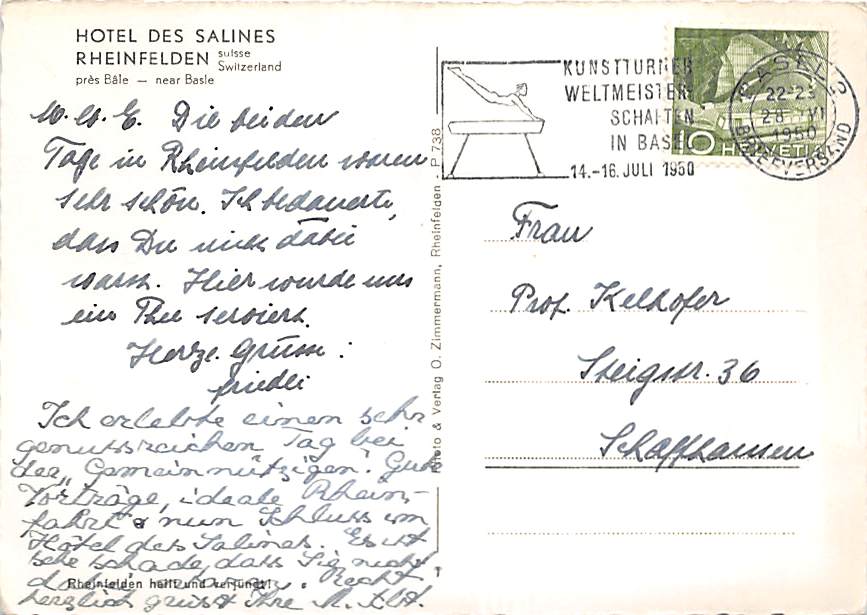 HOTEL DES SALINES
RHEINFELDEN suisse Switzerland
près Bâle — near Basle
Die beiden
Tage in Rheinfelden waren
sehr schön. Ich bedauerte,
dass Du nicht dabei
warst. Hier wurde uns
ein Thee serviert.
Herzl. Grüsse:
Friedli
Ich erlebte einen sehr
genussreichen Tag bei
den „Gemeinnützigen". Gute
Vorträge, ideale Rhein-
fahrt & nun Schluss im
Hôtel des Salines. Es ist
sehr schade, dass Sie nicht
Recht
herzlich grüsst Ihre
Rheinfelden heilt und verjüngt!
Photo & Verlag O. Zimmermann, Rheinfelden - P 738
KUNSTTURNER
WELTMEISTER-
SCHAFTEN
IN BASEL
14.-16. JULI 1950
BASEL 2
22-23
28 VI
1950
BRIEFVERSAND
10 HELVETIA
Frau
Prof. Kelhofer
Steigstr. 36
Schaffhausen